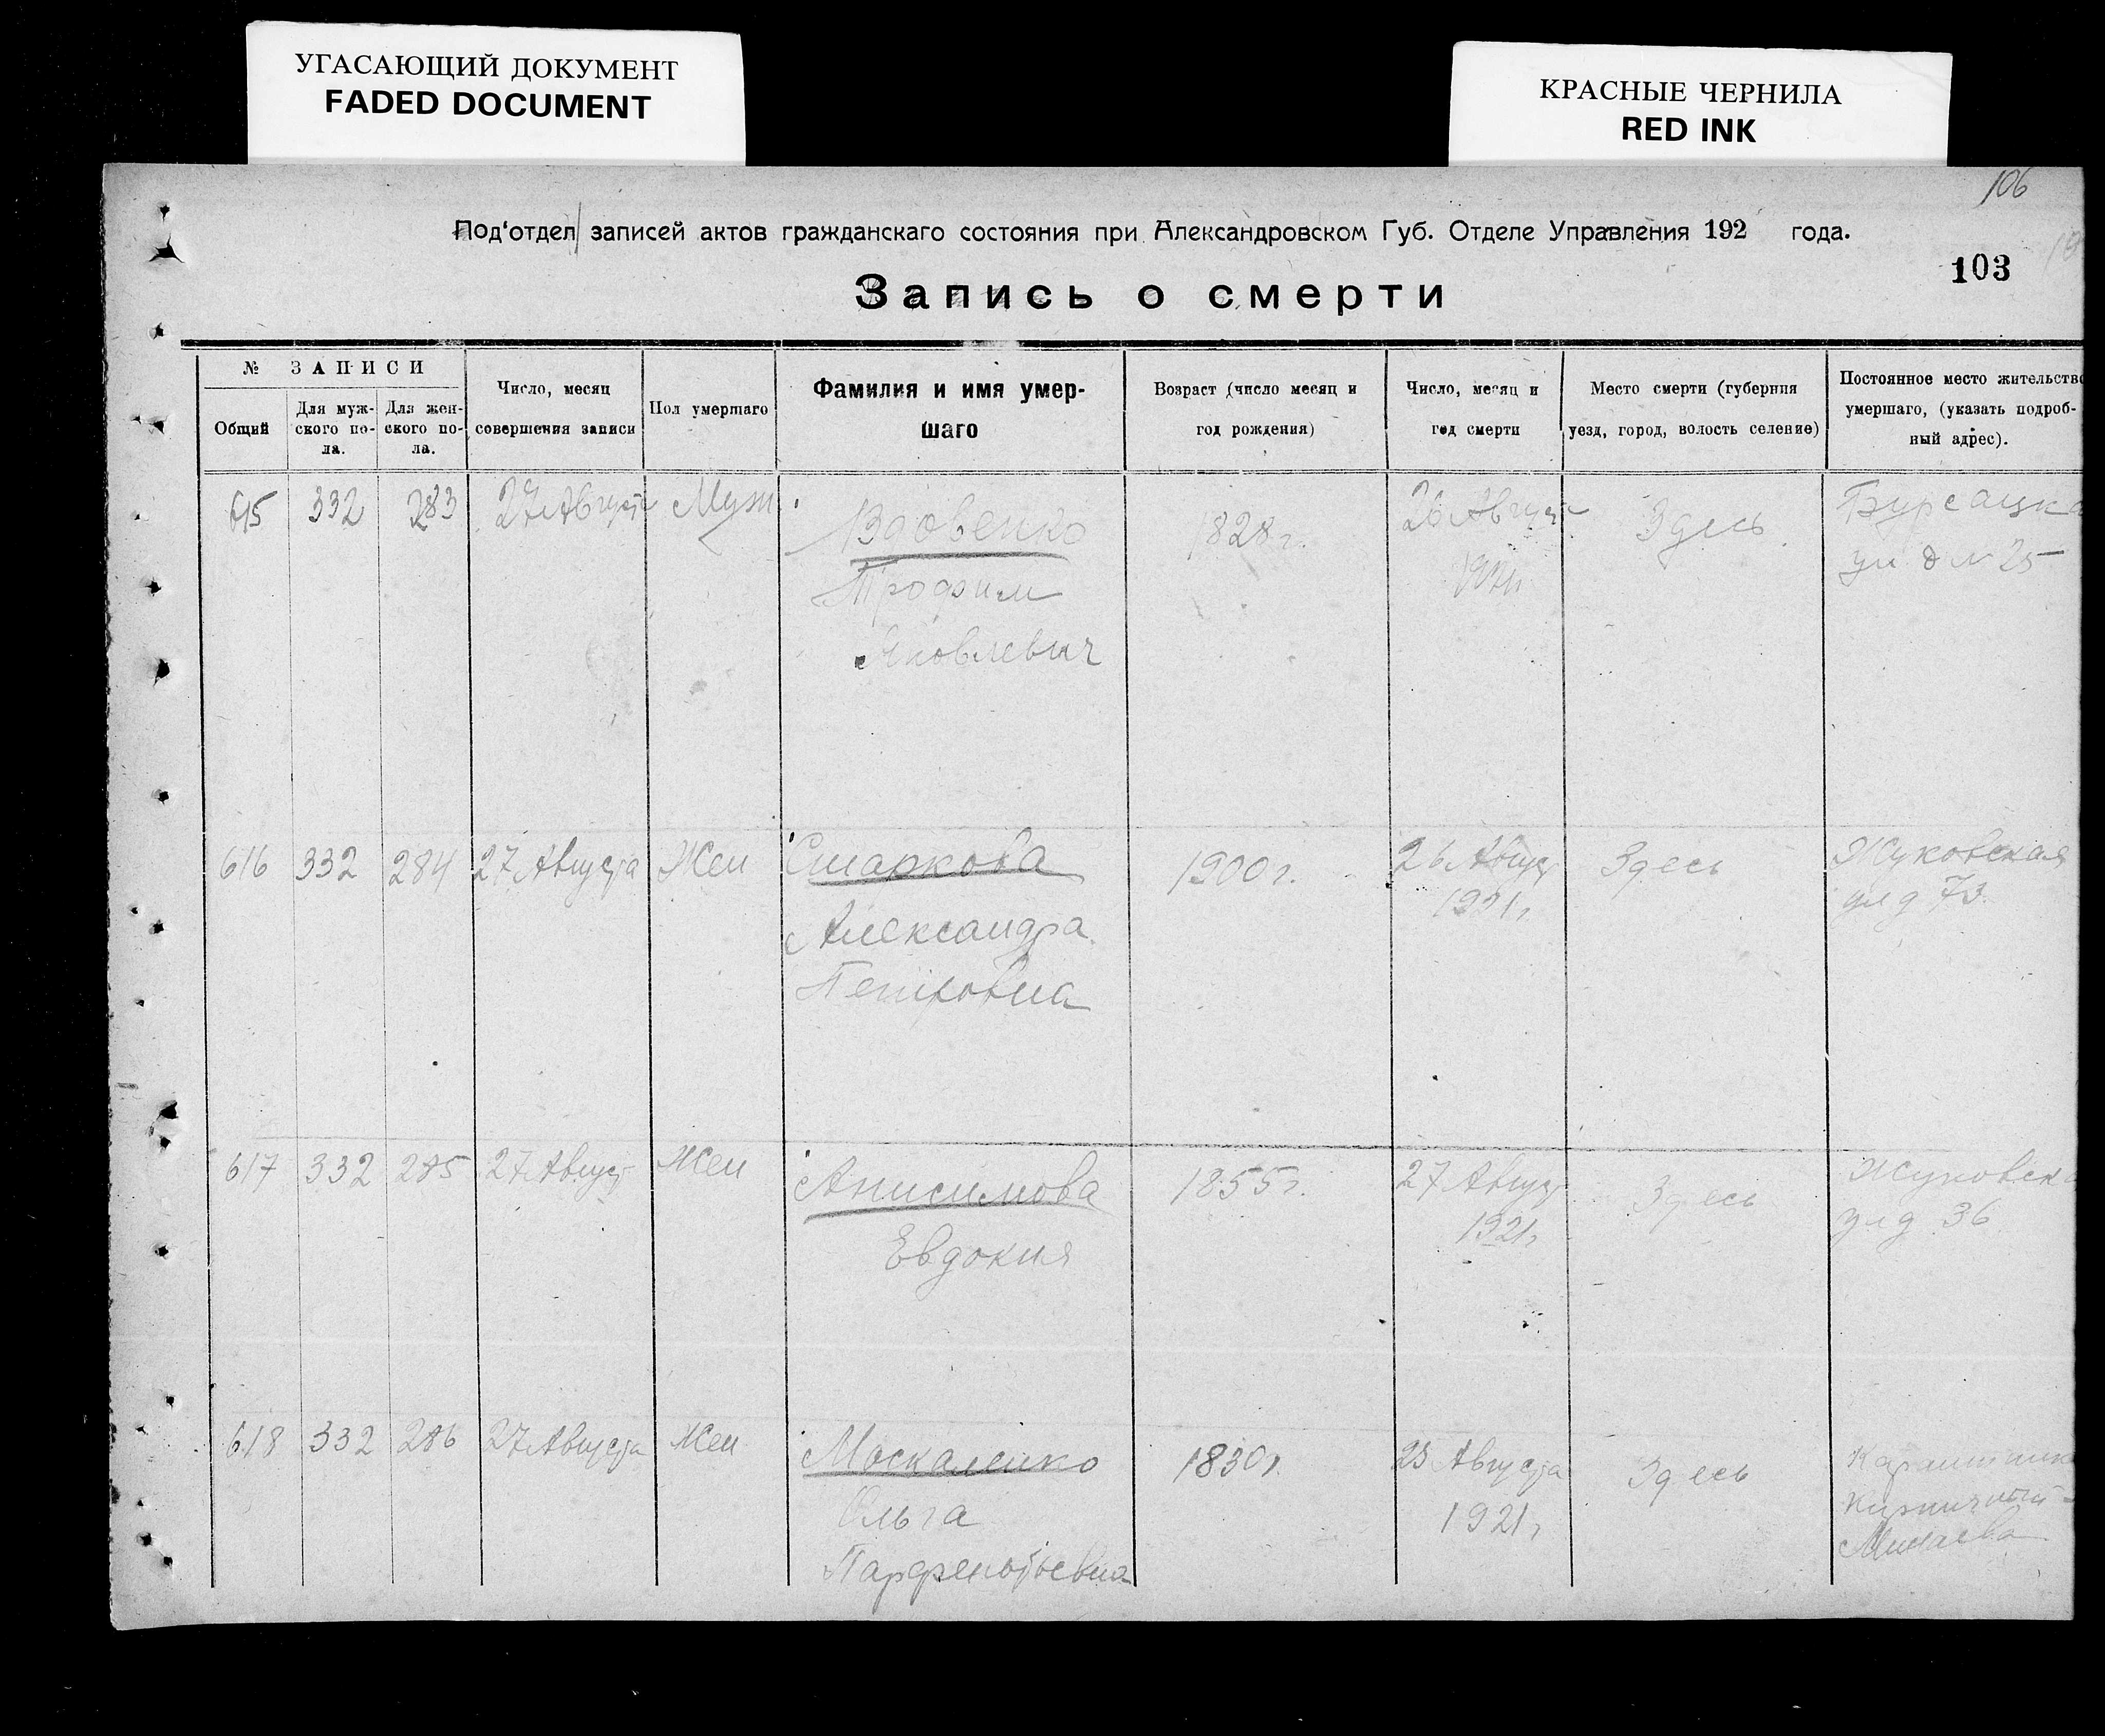 УГАСАЮЩИЙ ДОКУМЕНТ
FADED DOCUMENT
КРАСНЫЕ ЧЕРНИЛА
RED INK
106
Под‘отдел записей актов гражданскаго состояния при Александровском Губ. Отделе Управления 192 года.
103
Запись о смерти
№ ЗАПИСИ
Общий
Для муж-
ского по-
ла.
Для жен-
ского по-
ла.
Число, месяц
совершения записи
Пол умершаго
Фамилия и имя умер-
шаго
Возраст (число месяц и
год рождения)
Число, месяц и
год смерти
Место смерти (губерния
уезд, город, волость селение)
Постоянное место жительство
умершаго, (указать подроб-
ный адрес).
615 332 283 27 Августа Муж
Вдовенко
Трофим
Яковлевич
1828 г.
26 Август
Здесь
Бурсацка
ул д № 25
616 332 284 27 Августа Жен
Старкова
Александра
Петровна
1900 г.
26 Август
1921 г
Здесь
Жуковская
ул д 73
617 332 285 27 Август Жен
Анисимова
Евдокия
1855 г.
27 Август
1921 г
Здесь
Жуковска
ул д 36
618 332 286 27 Августа Жен
Москаленко
Ольга
Парфентьевна
1830 г.
25 Августа
1921 г
Здесь
Минаева